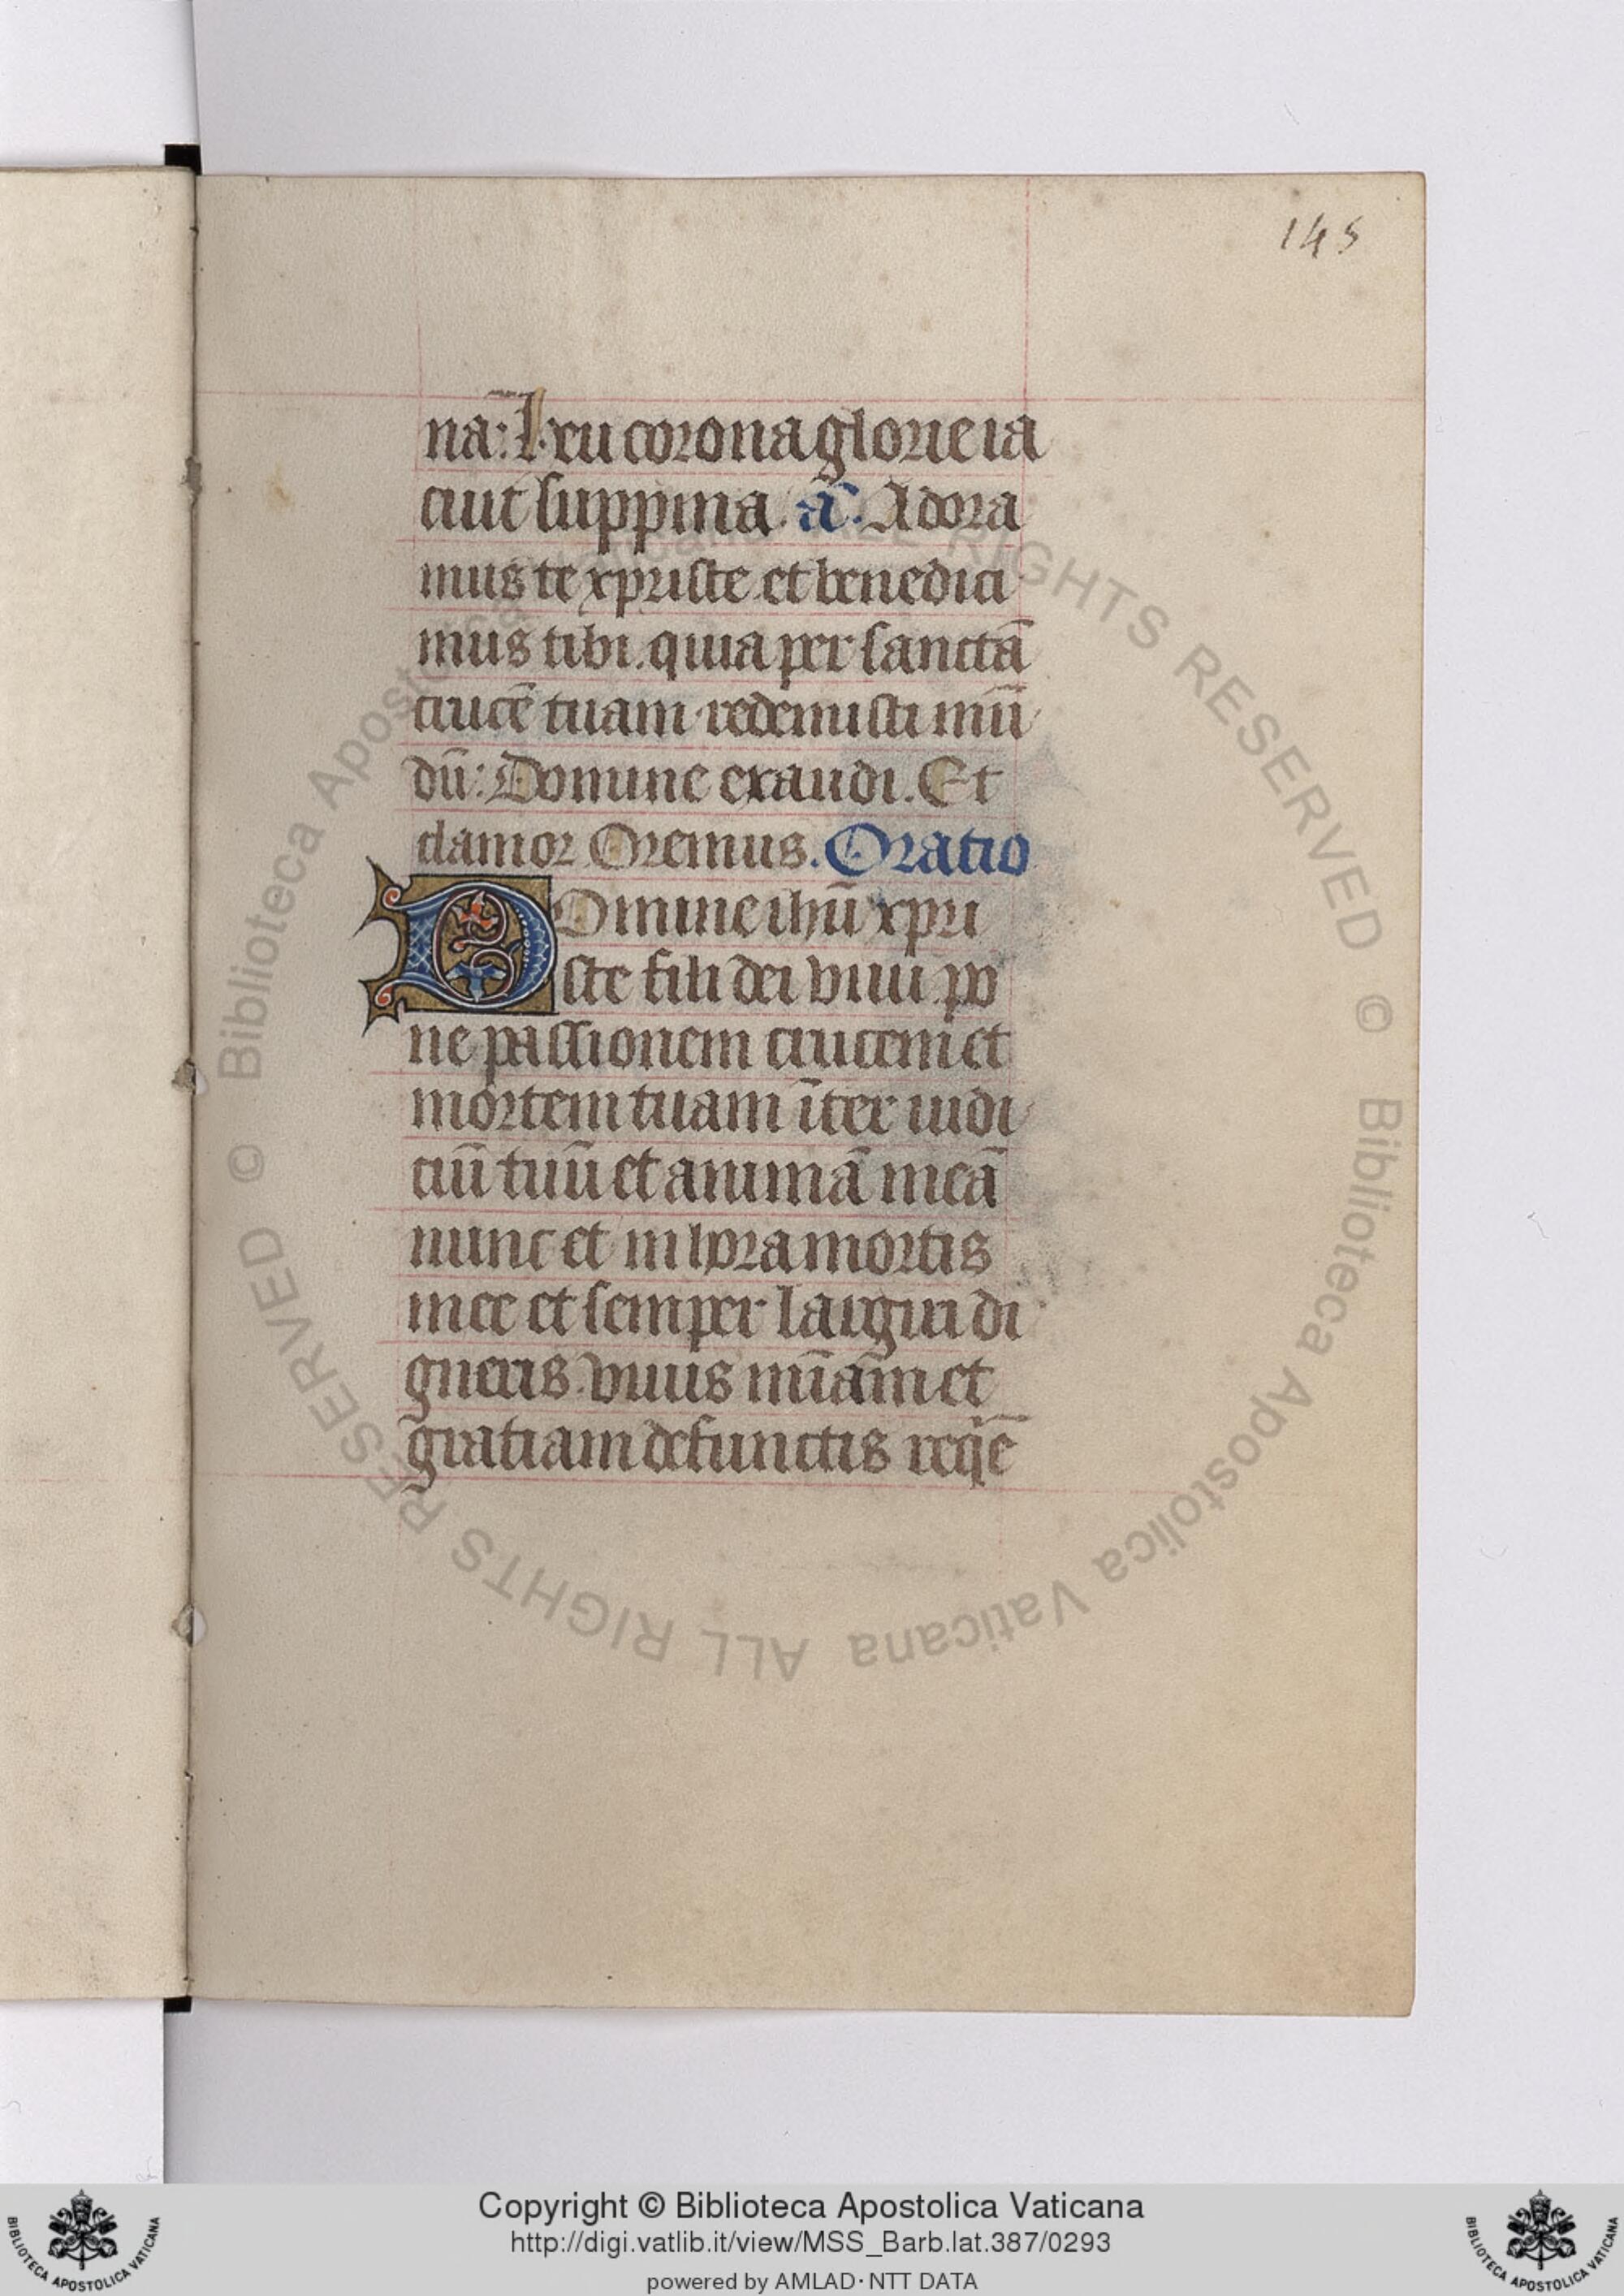 145
nā: Heu corona glorie ia
cuit suppina. ā. Adora
mus te xpriste et benedici
mus tibi. quia per sanctā
crucē tuam redemisti mū
dū: Domine exaudi. Et
clamor Oremus. Oratio
DOmine ihū xpri
ste fili dei viui po
ne passionem crucem et
mortem tuam īter iudi
ciū tuū et animā meā
nunc et in hora mortis
mee et semper largiri di
gneris. viuis mīam et
gratiam defunctis reqē
© Biblioteca Apostolica Vaticana ALL RIGHTS RESERVED
© Biblioteca Apostolica Vaticana ALL RIGHTS RESERVED
Copyright © Biblioteca Apostolica Vaticana
http://digi.vatlib.it/view/MSS_Barb.lat.387/0293
powered by AMLAD·NTT DATA
BIBLIOTECA APOSTOLICA VATICANA
BIBLIOTECA APOSTOLICA VATICANA